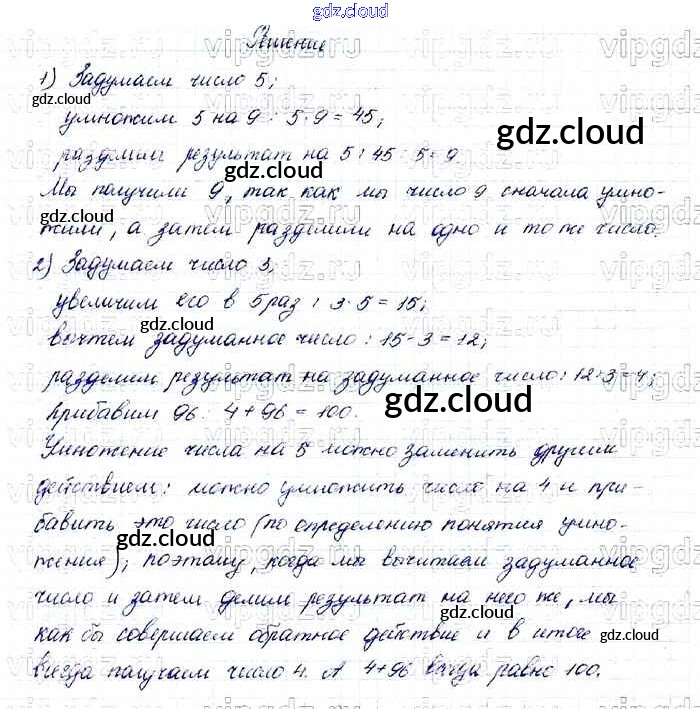 gdz.cloud
Решение
1) Задумаем число 5;
gdz.cloud
умножим 5 на 9 : 5·9=45;
gdz.cloud
разделим результат на 5 : 45:5=9
gdz.cloud
Мы получили 9, так как мы число 9 сначала умно-
gdz.cloud
жили, а затем разделили на одно и то же число.
2) Задумаем число 3;
увеличим его в 5 раз : 3·5=15;
gdz.cloud
вычтем задуманное число : 15-3=12;
разделим результат на задуманное число : 12:3=4;
прибавим 96: 4+96=100.
gdz.cloud
Умножение числа на 5 можно заменить другим
действием: можно умножить число на 4 и при-
бавить это число (по определению понятия умно-
gdz.cloud
жения); поэтому, когда мы вычитаем задуманное
число и затем делим результат на него же, мы
gdz.cloud
как бы совершаем обратное действие и в итоге
gdz.cloud
всегда получаем число 4. А 4+96 всегда равно 100.
vipgdz